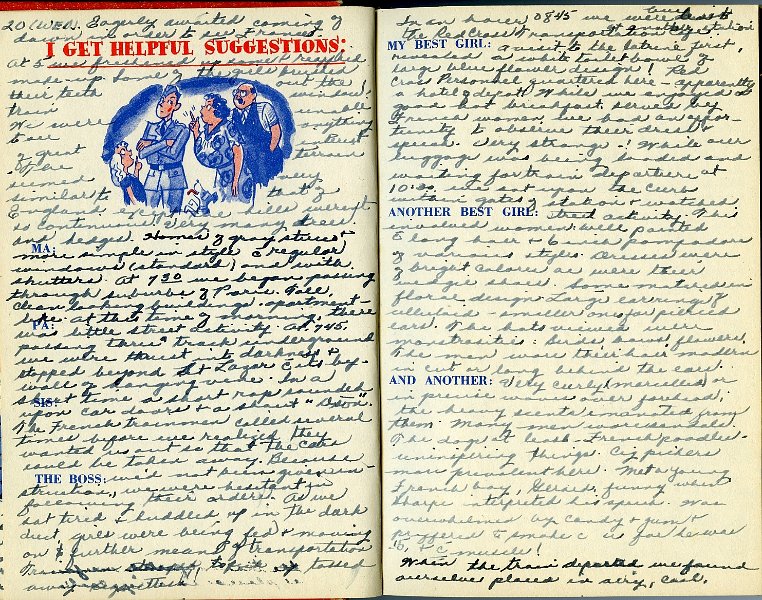 20 (WED). Eagerly awaited coming of
dawn in order to see France.
I GET HELPFUL SUGGESTIONS:
at 5 we freshened up some & reapplied
make-up. Some of the girls brushed
their teeth out the window!
train
We were unable
to see anything
of great interest
The terrain
seemed very
similar to that of
England except the hills weren't
so continuous. Very many trees
and hedges. Homes of gray stucco &
MA:
more simple in style c regular
windows (standard) and with
shutters. At 730 we began passing
through suburbs of Paris. Tall,
clean looking buildings - apartment-
like - at this time of morning there
PA:
was little street activity. At 745,
passing three track underground
we were thrust into darkness &
stopped beyond St Lazar c its by-
wall of hanging vine. In a
SIS:
short time a short rap sounded
upon car doors & a shout "
The French trainmen called several
times before we realized they
wanted us out so that the cars
could be taken away. Because
THE BOSS:
we'd not been given in-
structions, we were hesitant in
following their orders. As we
sat tired & huddled up in the dark
dust, girls were being fed & moving
on to further means of transportation
tossed
away cigarettes
In an hour, 0845 we were
the Red Cross transport
MY BEST GIRL:
a visit to the latrine first,
revealed a white toilet bowl of
large blue flower design! Red
Cross Personnel quartered here - apparently
a hotel & depot. While we enjoyed a
good hot breakfast, served by
French women, we had an oppor-
tunity to observe their dress &
speech. Very strange! While our
luggage was being loaded and
waiting for train departure at
10:30, we sat upon the curb
within gates of station & watched
ANOTHER BEST GIRL:
street activity. This
involved women: well painted
c long hair & 6 inch pompadors
of various styles. Dresses were
of bright colors as were their
wedgie shoes. Some matched in
floral design. Large earrings of
celluloid - smaller ones for pierced
ears. The hats viewed were
monstrosities: birds, bows, flowers.
The men wore their hair madder
in cut or long behind the ears.
AND ANOTHER:
Very curly (marcelled) or
in precise wave over forehead,
the heavy scents emanated from
them. Many men wore sandals.
The dogs at leash - French poodles -
uninspiring things. Cig pickers
man prominent here. Met a young
French boy, Gerard, funny when
Sharpe interpreted his speech. Was
overwhelmed by candy & gum &
proffered to smoke c us for he was
16, & c muscle!
When the train departed we found
ourselves placed in airy, cool,